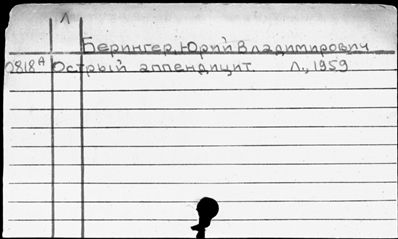 Л
Берингер, Юрий Владимирович
2818А Острый аппендицит. Л., 1959